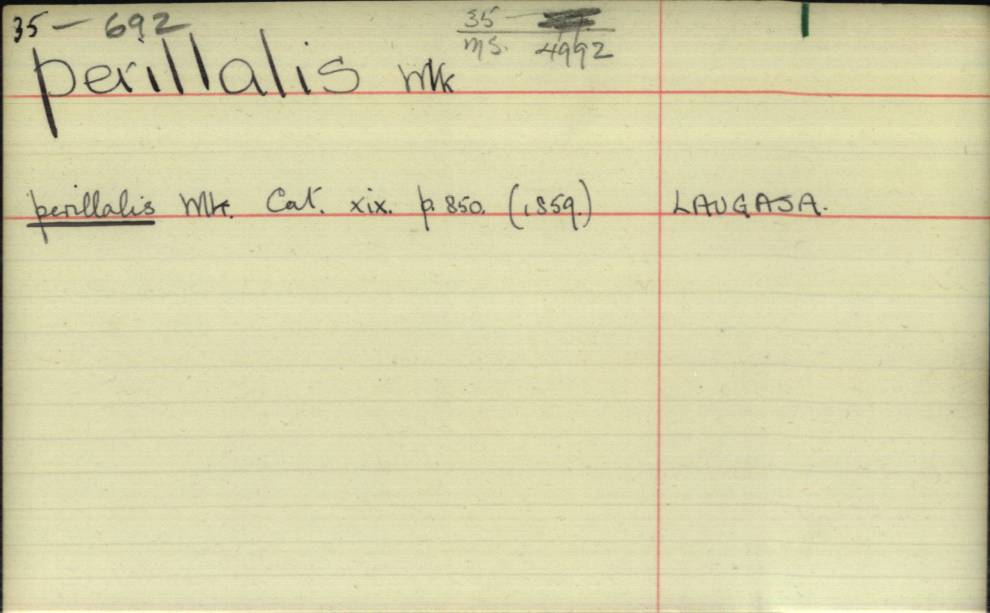 35 – 692
35 –
ms. 4992
perillalis Wlk
perillalis Wlk. Cat. xix. p. 850. (1859.) LAUGASA.